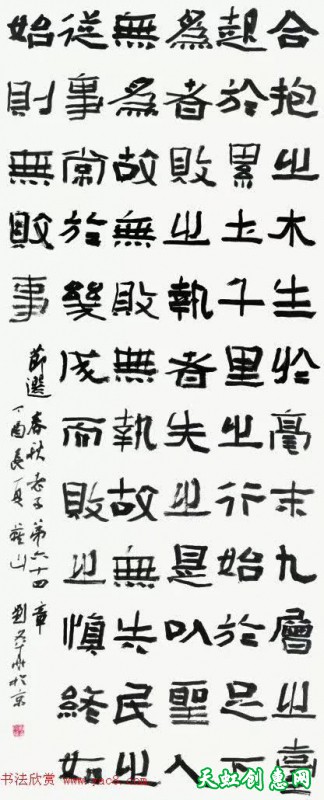 合抱之木生於毫末九層之臺
起於累土千里之行始於足下
爲者敗之執者失之是以聖人
無爲故無敗無執故無失民之
從事常於幾成而敗之慎終如
始則無敗事
節選春秋老子第六十四章
丁酉長夏 山劉文華於京
书法欣赏 www.yac8.com
天虹创惠网